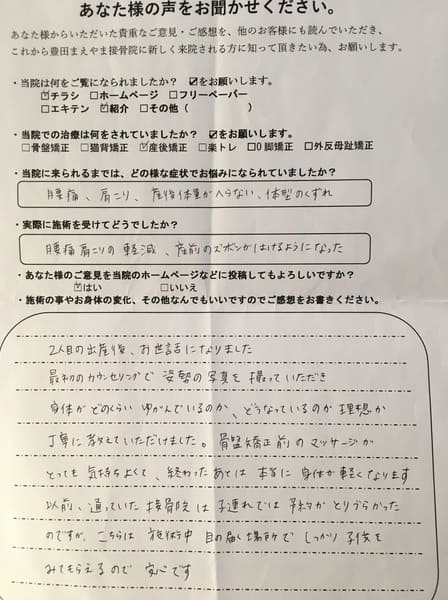 あなた様の声をお聞かせください。
あなた様からいただいた貴重なご意見・ご感想を、他のお客様にも読んでいただき、
これから豊田まえやま接骨院に新しく来院される方に知って頂きたい為、お願いします。
・当院は何をご覧になられましたか？ ☑をお願いします。
☑チラシ □ホームページ □フリーペーパー
□エキテン ☑紹介 □その他（ ）
・当院での治療は何をされていましたか？ ☑をお願いします。
□骨盤矯正 □猫背矯正 ☑産後矯正 □楽トレ □O脚矯正 □外反母趾矯正
・当院に来られるまでは、どの様な症状でお悩みになられていましたか？
腰痛、肩こり、産後体重がへらない、体型のくずれ
・実際に施術を受けてどうでしたか？
腰痛肩こりの軽減、産前のズボンがはけるようになった
・あなた様のご意見を当院のホームページなどに投稿してもよろしいですか？
☑はい □いいえ
・施術の事やお身体の変化、その他なんでもいいですのでご感想をお書きください。
2人目の出産後、お世話になりました
最初のカウンセリングで姿勢の写真を撮っていただき
身体がどのくらいゆがんでいるのか、どうなっているのが理想か
丁寧に教えていただけました。骨盤矯正前のマッサージが
とっても気持ちよくて、終わったあとは本当に身体が軽くなります
以前、通っていた接骨院は子連れでは予約がとりづらかった
のですが、こちらは施術中目の届く場所でしっかり子供を
みてもらえるので安心です